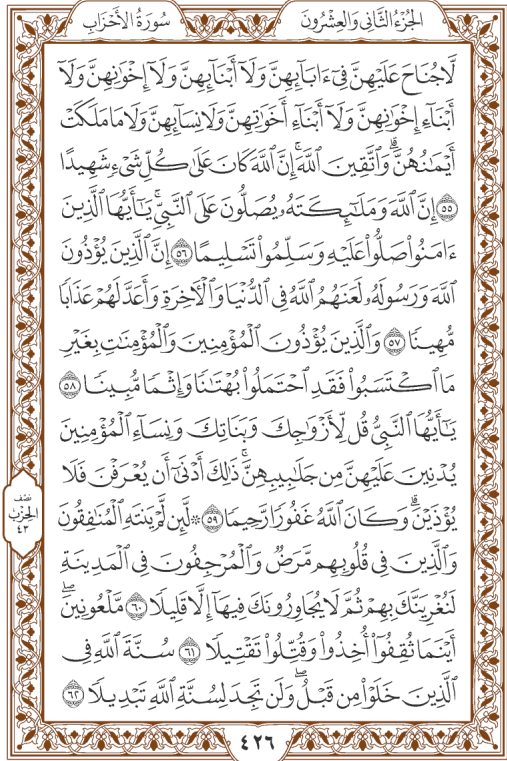 الجُزْءُ الثَّانِي وَالعِشْرُونَ
سُورَةُ الأَحْزَاب
لَّا جُنَاحَ عَلَيْهِنَّ فِىٓ ءَابَآئِهِنَّ وَلَآ أَبْنَآئِهِنَّ وَلَآ إِخْوَٰنِهِنَّ وَلَآ
أَبْنَآءِ إِخْوَٰنِهِنَّ وَلَآ أَبْنَآءِ أَخَوَٰتِهِنَّ وَلَا نِسَآئِهِنَّ وَلَا مَا مَلَكَتْ
أَيْمَٰنُهُنَّ ۗ وَٱتَّقِينَ ٱللَّهَ ۚ إِنَّ ٱللَّهَ كَانَ عَلَىٰ كُلِّ شَىْءٍ شَهِيدًا
٥٥ إِنَّ ٱللَّهَ وَمَلَٰٓئِكَتَهُۥ يُصَلُّونَ عَلَى ٱلنَّبِىِّ ۚ يَٰٓأَيُّهَا ٱلَّذِينَ
ءَامَنُوا۟ صَلُّوا۟ عَلَيْهِ وَسَلِّمُوا۟ تَسْلِيمًا ٥٦ إِنَّ ٱلَّذِينَ يُؤْذُونَ
ٱللَّهَ وَرَسُولَهُۥ لَعَنَهُمُ ٱللَّهُ فِى ٱلدُّنْيَا وَٱلْءَاخِرَةِ وَأَعَدَّ لَهُمْ عَذَابًا
مُّهِينًا ٥٧ وَٱلَّذِينَ يُؤْذُونَ ٱلْمُؤْمِنِينَ وَٱلْمُؤْمِنَٰتِ بِغَيْرِ
مَا ٱكْتَسَبُوا۟ فَقَدِ ٱحْتَمَلُوا۟ بُهْتَٰنًا وَإِثْمًا مُّبِينًا ٥٨
يَٰٓأَيُّهَا ٱلنَّبِىُّ قُل لِّأَزْوَٰجِكَ وَبَنَاتِكَ وَنِسَآءِ ٱلْمُؤْمِنِينَ
يُدْنِينَ عَلَيْهِنَّ مِن جَلَٰبِيبِهِنَّ ۚ ذَٰلِكَ أَدْنَىٰٓ أَن يُعْرَفْنَ فَلَا
يُؤْذَيْنَ ۗ وَكَانَ ٱللَّهُ غَفُورًا رَّحِيمًا ٥٩ ۞ لَّئِن لَّمْ يَنتَهِ ٱلْمُنَٰفِقُونَ
وَٱلَّذِينَ فِى قُلُوبِهِم مَّرَضٌ وَٱلْمُرْجِفُونَ فِى ٱلْمَدِينَةِ
لَنُغْرِيَنَّكَ بِهِمْ ثُمَّ لَا يُجَاوِرُونَكَ فِيهَآ إِلَّا قَلِيلًا ٦٠ مَّلْعُونِينَ ۖ
أَيْنَمَا ثُقِفُوٓا۟ أُخِذُوا۟ وَقُتِّلُوا۟ تَقْتِيلًا ٦١ سُنَّةَ ٱللَّهِ فِى
ٱلَّذِينَ خَلَوْا۟ مِن قَبْلُ ۖ وَلَن تَجِدَ لِسُنَّةِ ٱللَّهِ تَبْدِيلًا ٦٢
نصف
الحزب
٤٣
٤٢٦